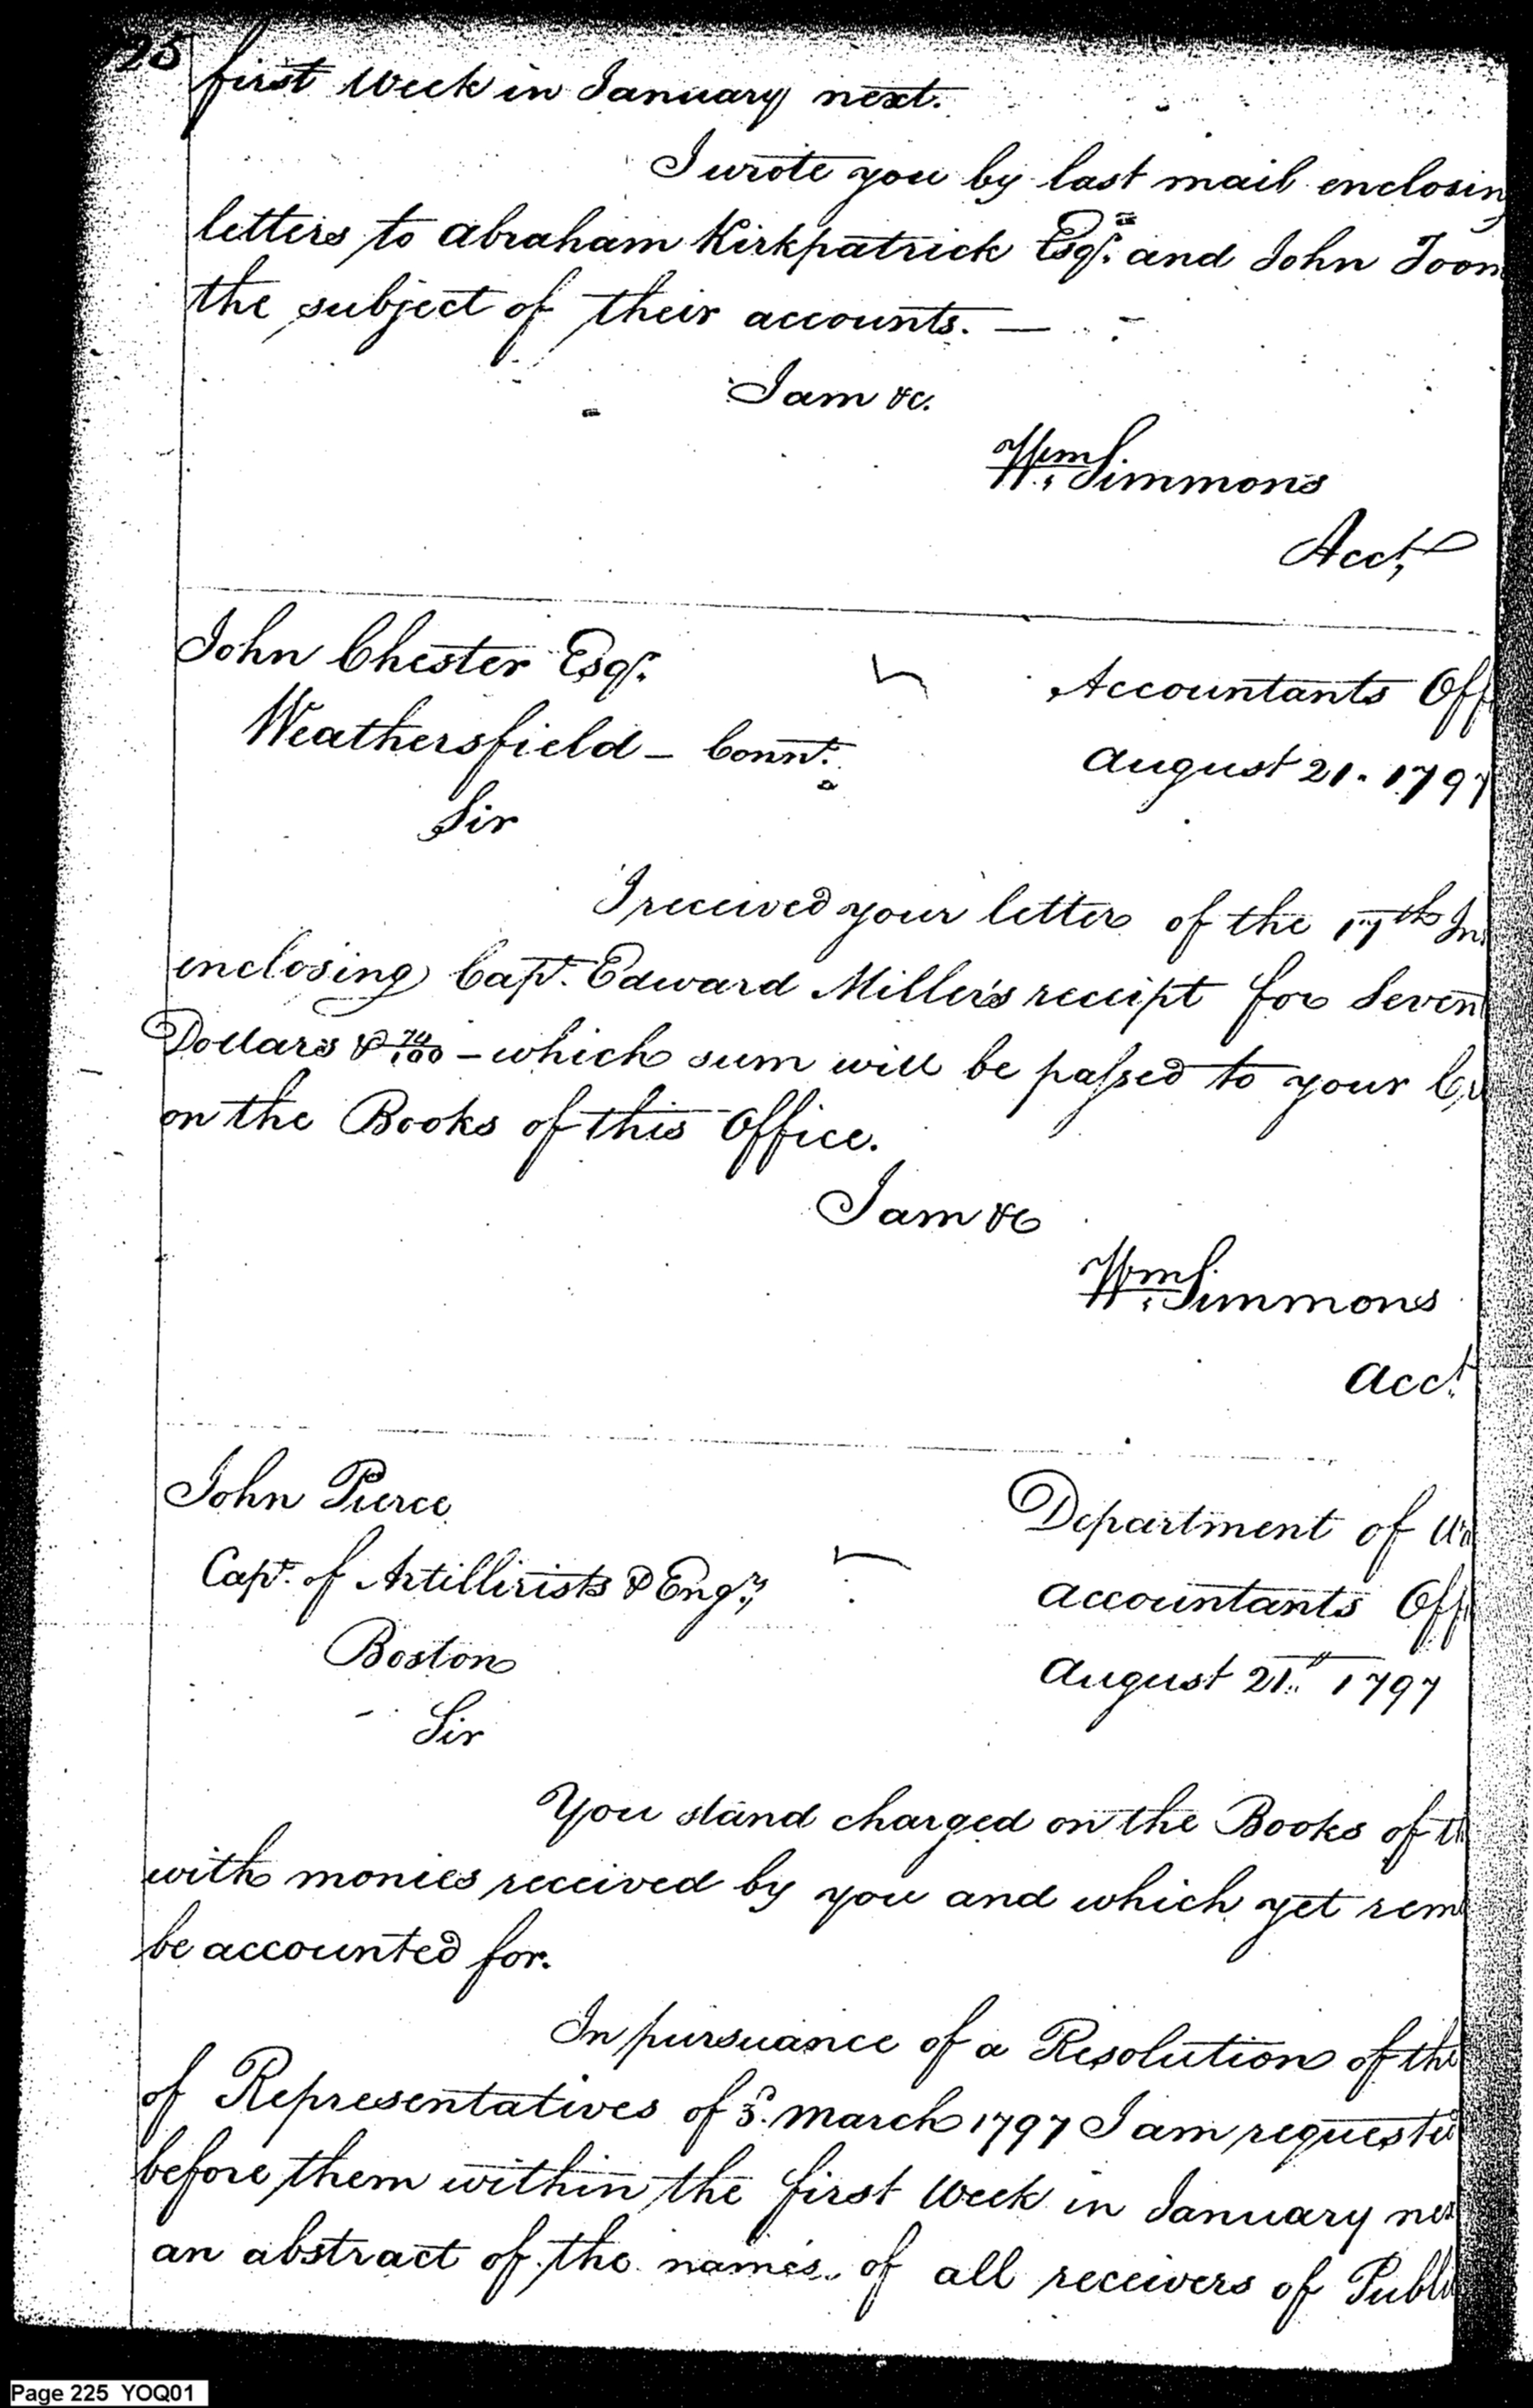 25
first Week in January next.
I wrote you by last mail enclosin
letters to Abraham Kirkpatrick Esqr. and John Toom
the subject of their accounts. —
I am &c.
Wm. Simmons
Acct.
John Chester Esqr.
Accountants Off
Weathersfield — Connt.
August 21. 1797
Sir
I received your letter of the 17th Ins
enclosing Capt. Edward Miller's receipt for Seven
Dollars & 74/100 — which sum will be passed to your Cr
on the Books of this Office.
I am &c
Wm. Simmons
Acct.
John Pierce
Department of Wa
Capt. of Artillirists & Engrs.
Accountants Offi
Boston
August 21st 1797
Sir
You stand charged on the Books of th
with monies received by you and which yet rem
be accounted for.
In pursuance of a Resolution of the
of Representatives of 3d. March 1797 I am requested
before them within the first Week in January nex
an abstract of the names of all receivers of Publi
Page 225 YOQ01